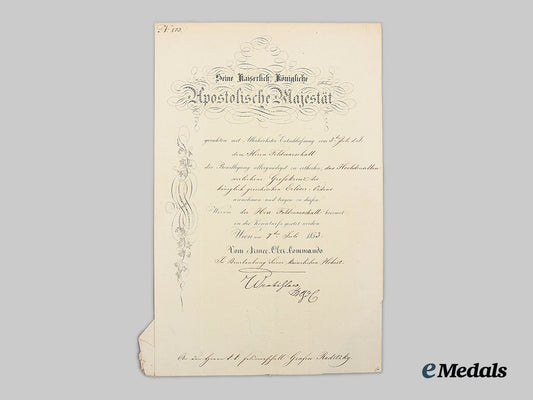 Nº 183
Seine Kaiserlich Königliche
Apostolische Majestät
geruhten mit Allerhöchster Entschließung vom 5ten Juli d. J.
dem Herrn Feldmarschall
die Bewilligung allergnädigst zu ertheilen, das Hochdenselben
verliehene Großkreuz des
königlich griechischen Erlöser-Ordens
annehmen und tragen zu dürfen.
Wovon der Herr Feldmarschall hiermit
in die Kenntniß gesetzt werden
Wien am 7ten Juli 1853.
Vom Armee-Ober-Commando
In Seiner kaiserlichen Hoheit
Wratislaw
An den Herrn k. k. Feldmarschall Grafen Radetzky
eMedals